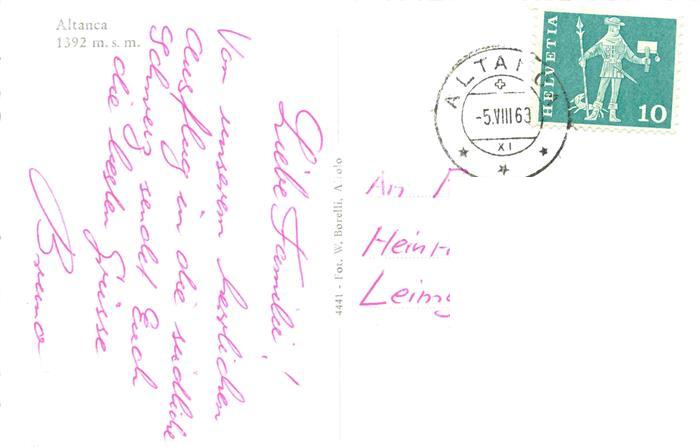 Altanca
1392 m. s. m.
Liebe Familie!
Von unserem herrlichen
Ausflug in die südliche
Schweiz sendet Euch
die besten Grüsse
Bruno
4441 - Fot. W. Borelli, Airolo
HELVETIA
10
ALTANCA
-5.VIII 63
XI
An